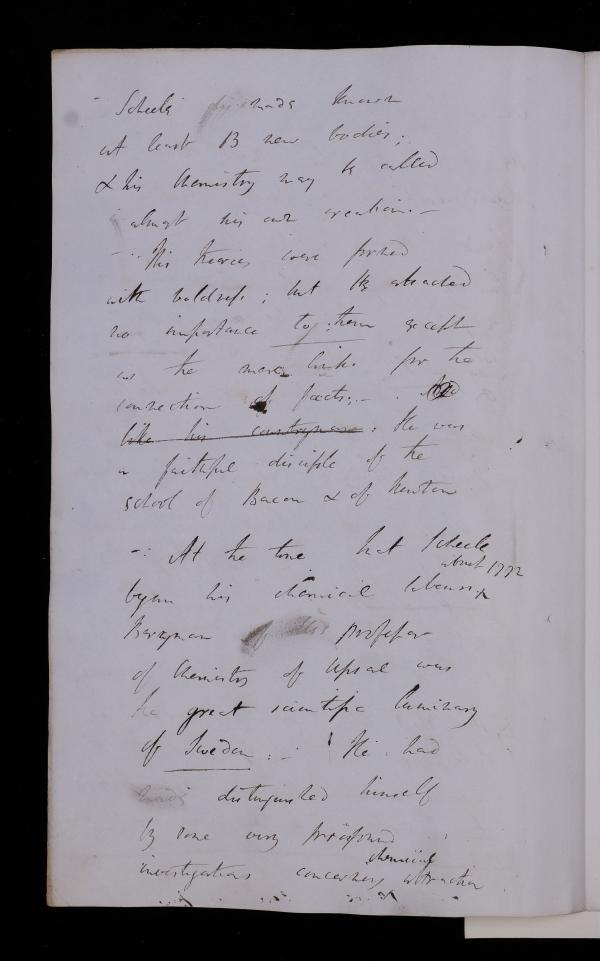 - Scheele made known
at least 13 new bodies;
& his Chemistry may be called
almost his own creation. -
- His theories were formed
with boldness; but He attached
no importance to them except
as the mere links for the
connection of facts; -
like his countryman: He was
a faithful disciple of the
school of Bacon & of Newton
-: At the time that Scheele
about 1772
began his chemical labours x
Bergman professor
of Chemistry of Upsal was
the great scientific luminary
of Sweden: - He had
distinguished himself
by some very profound
chemical
investigations concerning attraction